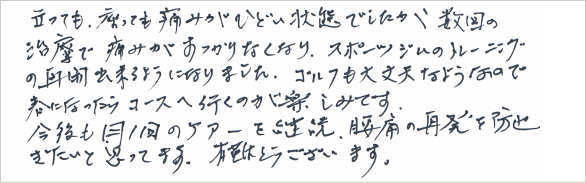 立っても、座っても痛みがひどい状態でしたが、数回の
治療で痛みがすっかりなくなり、スポーツジムのトレーニング
の再開出来るようになりました。ゴルフも大丈夫なようなので
春になったらコースへ行くのが楽しみです。
今後も月1回のケアーを継続、腰痛の再発を防止
きたいと思ってます。有難とうございます。